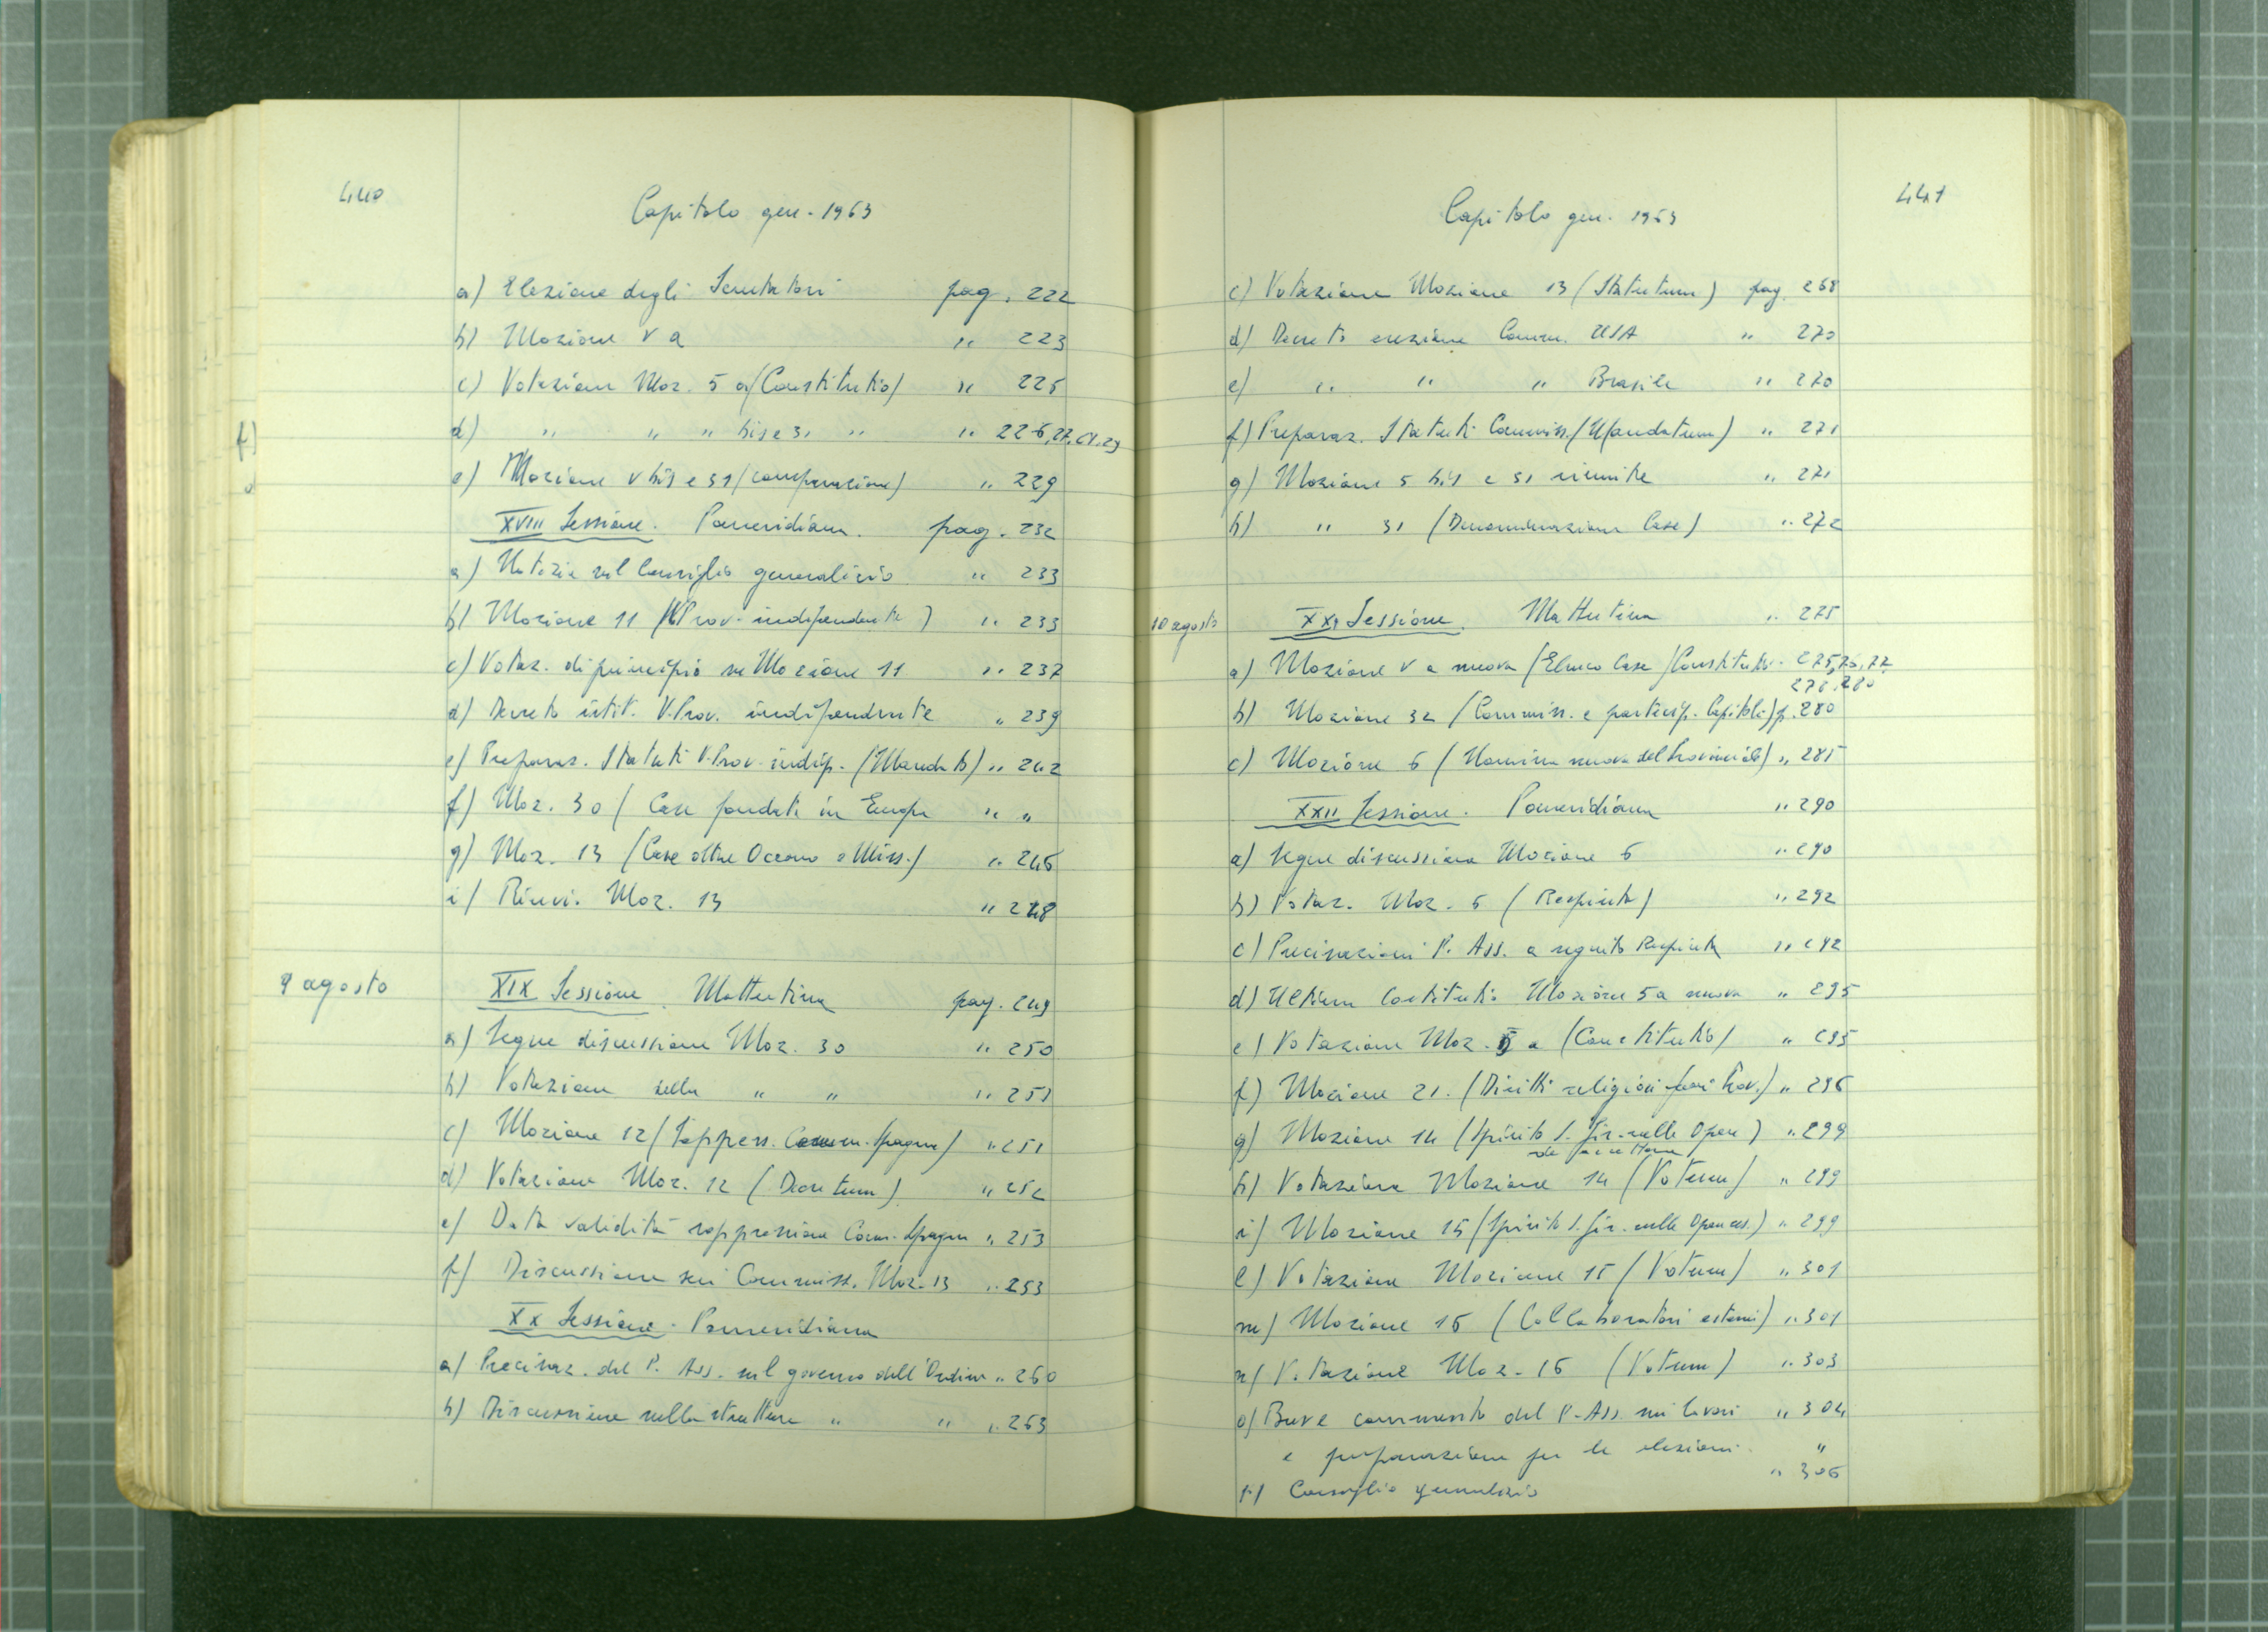 440
Capitolo gen. 1963
a) Elezione degli Scrutatori pag. 222
b) Mozione V a " 223
c) Votazione Moz. 5 a (Constitutio) " 225
d) " " " bis e 31 " " 226, 27, 28, 29
e) Mozione V bis e 31 (comparazione) " 229
XVIII Sessione. Pomeridiana. pag. 232
a) Notizie sul Consiglio generalizio " 233
b) Mozione 11 (V Prov. indipendente) " 233
c) Votaz. di principio su Mozione 11 " 237
d) Decreto istit. V. Prov. indipendente " 239
e) Preparaz. Statuti V. Prov. indip. (Mandato) " 242
f) Moz. 30 (Case fondate in Europa " "
g) Moz. 13 (Case oltre Oceano e Miss.) " 246
i) Rinvi. Moz. 13 " 248
9 agosto
XIX Sessione. Mattutina pag. 249
a) Segue discussione Moz. 30 " 250
b) Votazione della " " " 251
c) Mozione 12 (Soppress. Comm. Spagna) " 251
d) Votazione Moz. 12 (Decretum) " 252
e) Data validità soppressione Comm. Spagna " 253
f) Discussione sui Commiss. Moz. 13 " 253
XX Sessione. Pomeridiana
a) Precisaz. del P. Ass. sul governo dell'Ordine " 260
b) Discussione sulla struttura " " " 263
441
Capitolo gen. 1963
c) Votazione Mozione 13 (Statutum) pag. 268
d) Decreto erezione Comm. USA " 270
e) " " " Brasile " 270
f) Preparaz. Statuti Commiss. (Mandatum) " 271
g) Mozione 5 bis e 31 riunite " 271
h) " 31 (Denominazione Case) " 272
10 agosto
XXI Sessione. Mattutina " 275
a) Mozione V a nuova (Elenco Case) Constitutio. 275, 76, 77,
278, 280
b) Mozione 32 (Commiss. e partecip. Capitolo) p. 280
c) Mozione 6 (Nomina nuova del Provinciale) " 285
XXII Sessione. Pomeridiana " 290
a) Segue discussione Mozione 6 " 290
b) Votaz. Moz. 6 (Respinta) " 292
c) Precisazioni P. Ass. a seguito Respinta " 292
d) Ultima Mozione 5a nuova " 295
e) Votazione Moz. 5 a (Constitutio) " 295
f) Mozione 21. (Diritti religiosi fuori Prov.) " 296
g) Mozione 14 (Spirito S. Gir. nelle Opere) " 299
h) Votazione Mozione 14 (Votum) " 299
i) Mozione 15 (Spirito S. Gir. nelle Opere) " 299
l) Votazione Mozione 15 (Votum) " 301
m) Mozione 16 (Collaboratori esterni) " 301
n) Votazione Moz. 16 (Votum) " 303
o) Breve commento del P. Ass. sui lavori " 304
e preparazione per le elezioni. "
p) Consiglio generalizio " 306